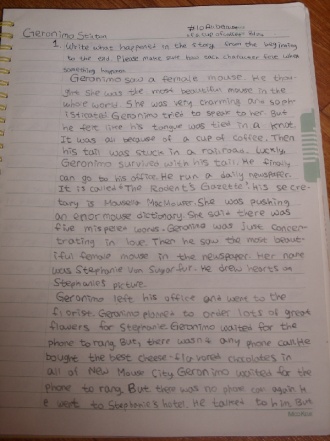 Geronimo Stilton
1. Write what happened in the story from the beginning
to the end. Please make sure each character face what
something happen
Geronimo saw a female mouse. He thou-
ght She was the most beautiful mouse in the
whole world. She was very charming and soph-
isticated. Geronimo tried to speak to her. But
he felt like his tongue was tied in a knot.
It was all because of a cup of coffee. Then
his tail was stuck in a railroad. Luckly,
Geronimo survived with his tail. He finally
can go to his office. He run a daily newspaper.
It is called "The Rodent's Gazette". his secre-
tary is Mousella MacMouser. She was pushing
an enormouse dictionary. She said there was
five misspeled words. Geronimo was just concen-
trating in love. Then he saw the most beaut-
iful female mouse in the newspaper. Her name
was Stephanie Von Sugarfur. He drew hearts on
Stephanie's picture.
Geronimo left his office and went to the
florist. Geronimo planed to order lots of great
flowers for Stephanie. Geronimo waited for the
phone to rang. But, there was any phone call. He
bought the best cheese-flavored chocolates in
all of New Mouse City. Geronimo waited for the
phone to rang. But there was no phone call again. H
e went to Stephanie's hotel. He talked to him. But